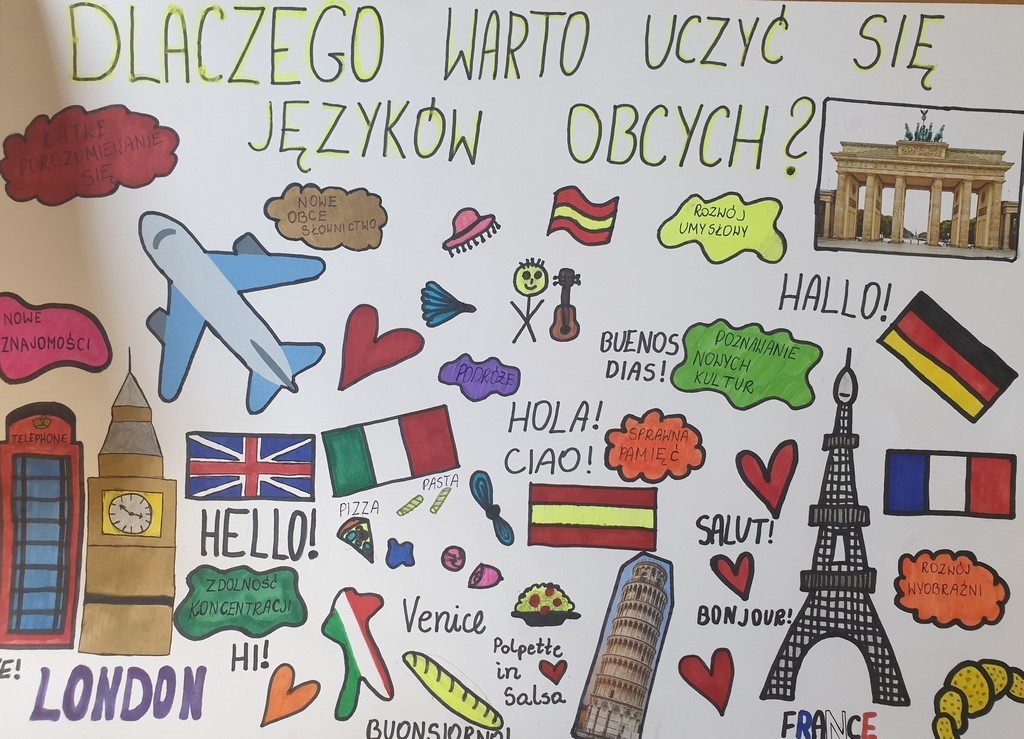 DLACZEGO WARTO UCZYĆ SIĘ
JĘZYKÓW OBCYCH?
ŁATKE
POROZUMIEWANIE
SIĘ
NOWE
OBCE
SŁOWNICTWO
ROZWÓJ
UMYSŁOWY
HALLO!
NOWE
ZNAJOMOŚCI
BUENOS
DIAS!
POZNAWANIE
NOWYCH
KULTUR
PODRÓŻE
HOLA!
CIAO!
SPRAWNA
PAMIĘĆ
TELEPHONE
PIZZA
PASTA
HELLO!
SALUT!
ZDOLNOŚĆ
KONCENTRACJI
ROZWÓJ
WYOBRAŹNI
Venice
BONJOUR!
HI!
Polpette
in
Salsa
E!
LONDON
BUONGIORNO!
FRANCE